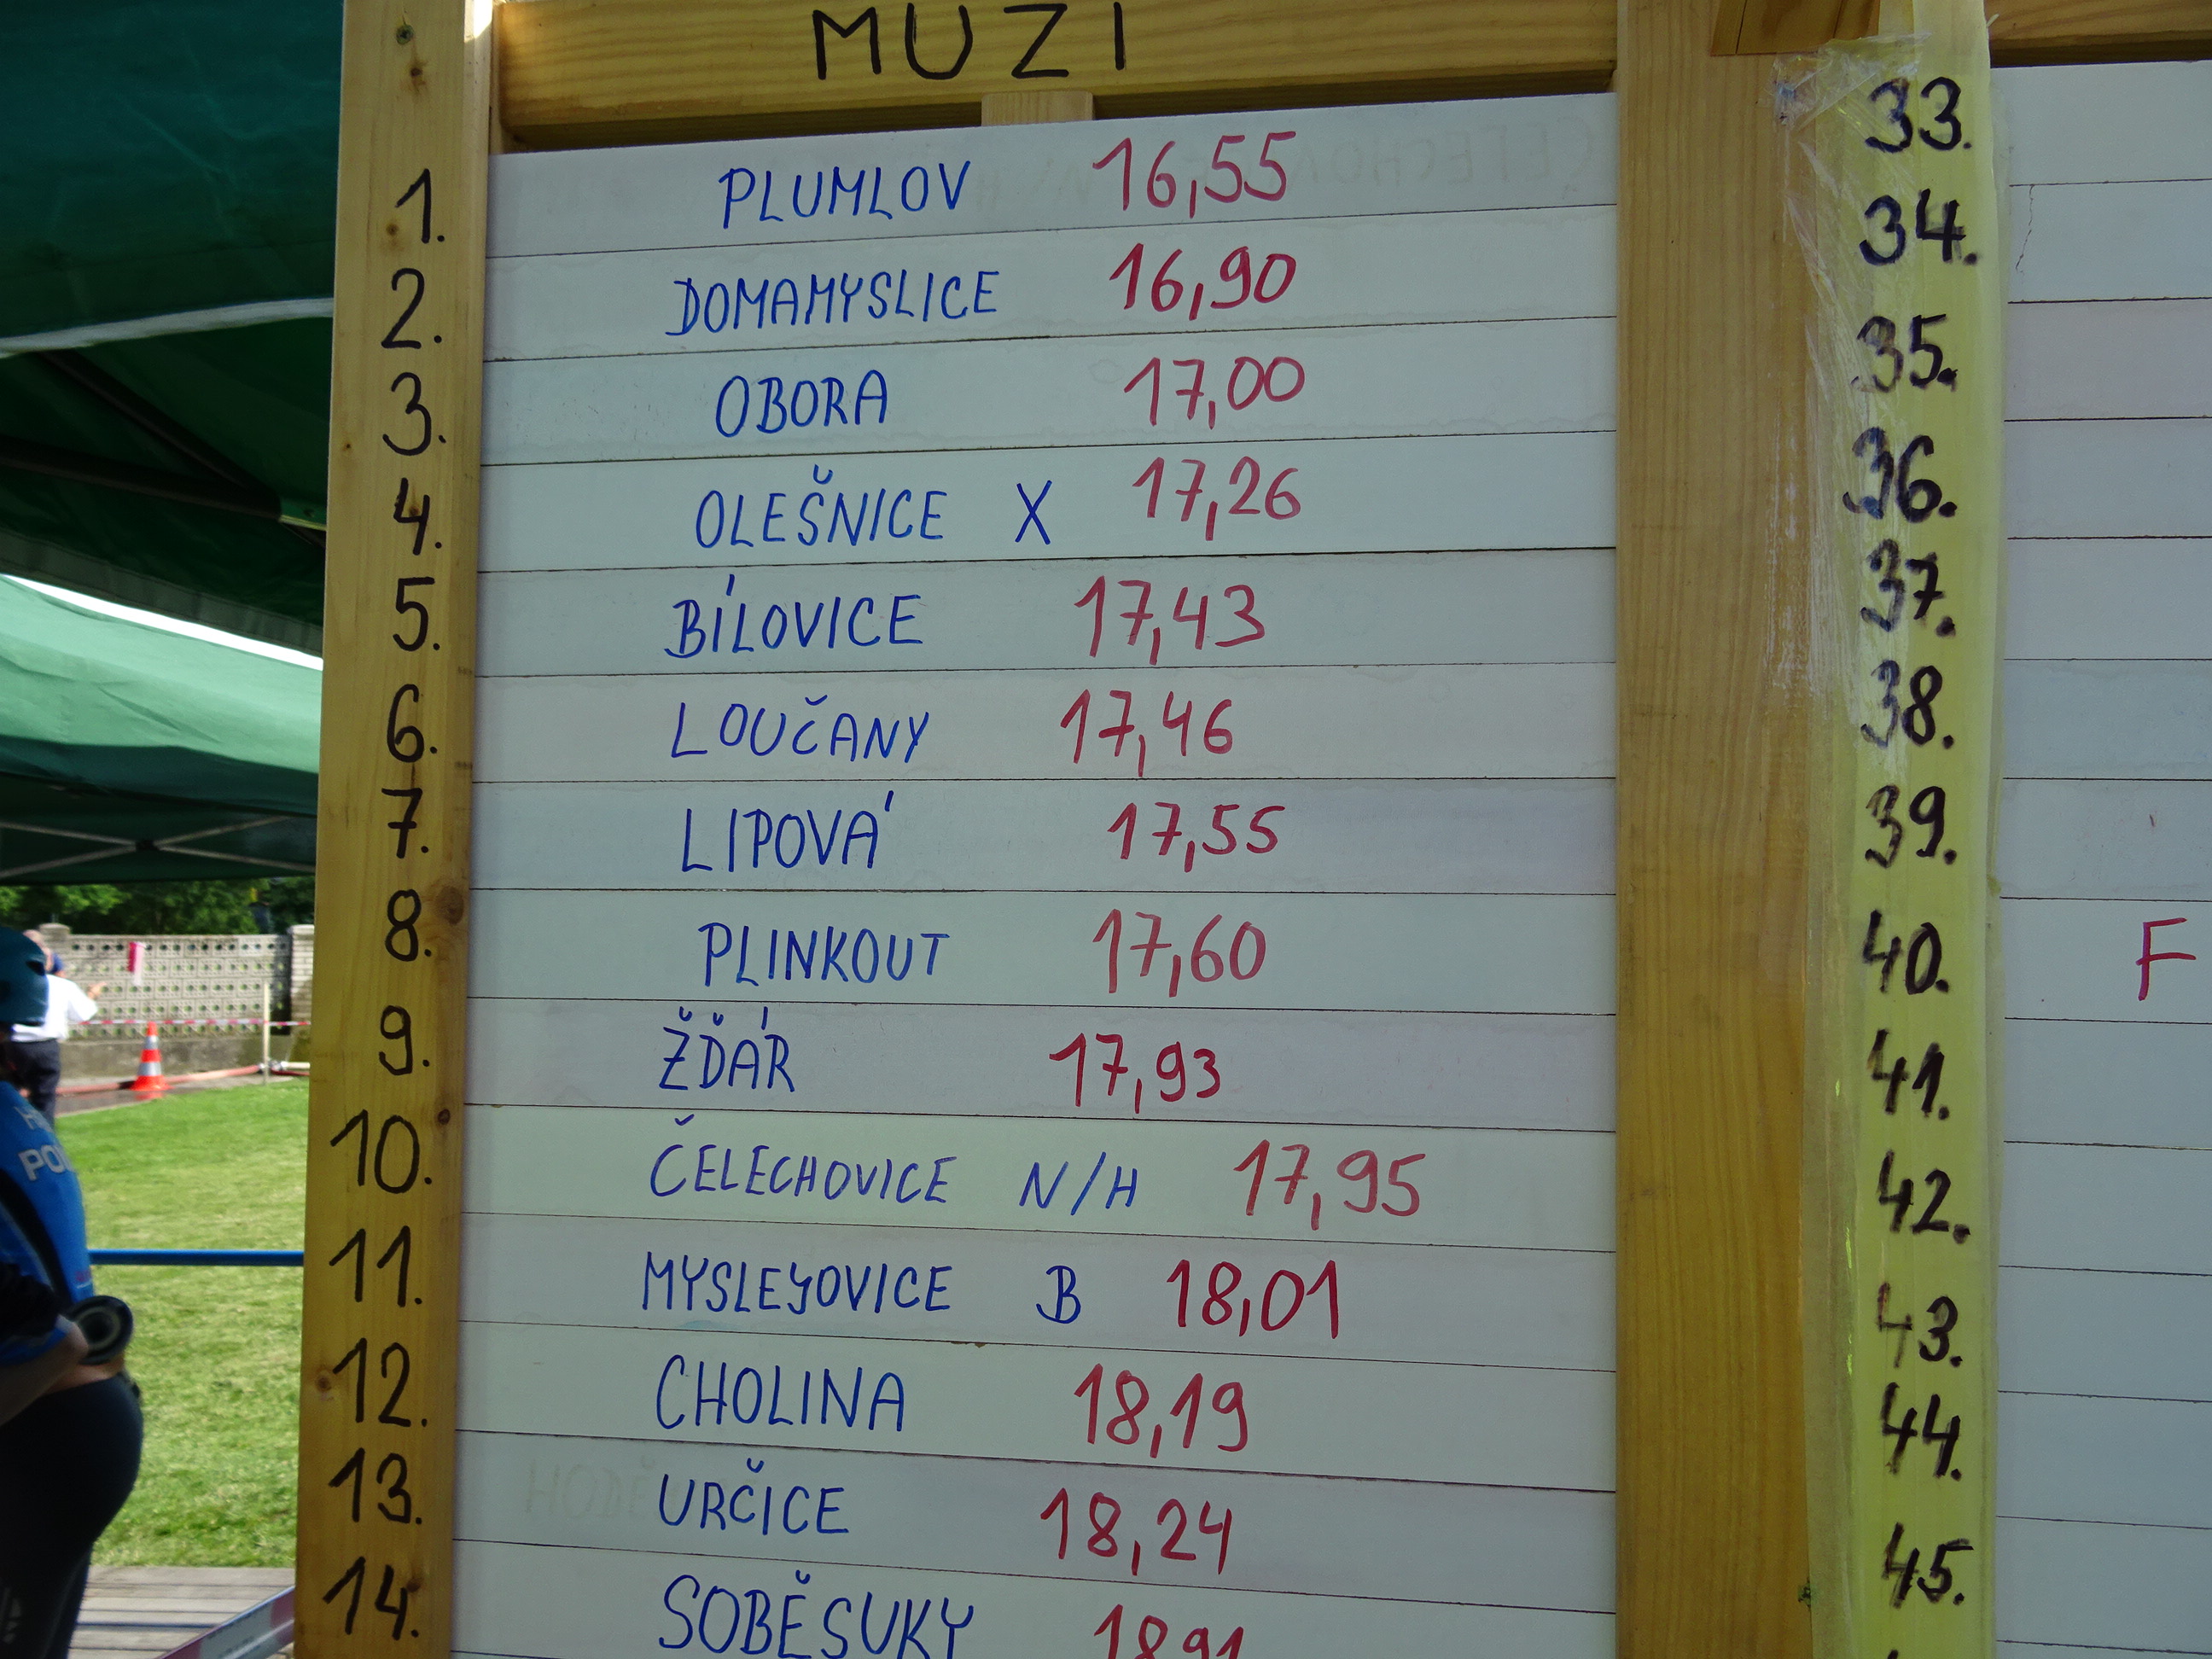 MUZI
1. PLUMLOV 16,55
2. DOMAMYSLICE 16,90
3. OBORA 17,00
4. OLEŠNICE X 17,26
5. BÍLOVICE 17,43
6. LOUČANY 17,46
7. LIPOVÁ 17,55
8. PLINKOUT 17,60
9. ŽĎÁR 17,93
10. ČELECHOVICE N/H 17,95
11. MYSLEJOVICE B 18,01
12. CHOLINA 18,19
13. URČICE 18,24
14. SOBĚSUKY 18,91
33.
34.
35.
36.
37.
38.
39.
40. F
41.
42.
43.
44.
45.